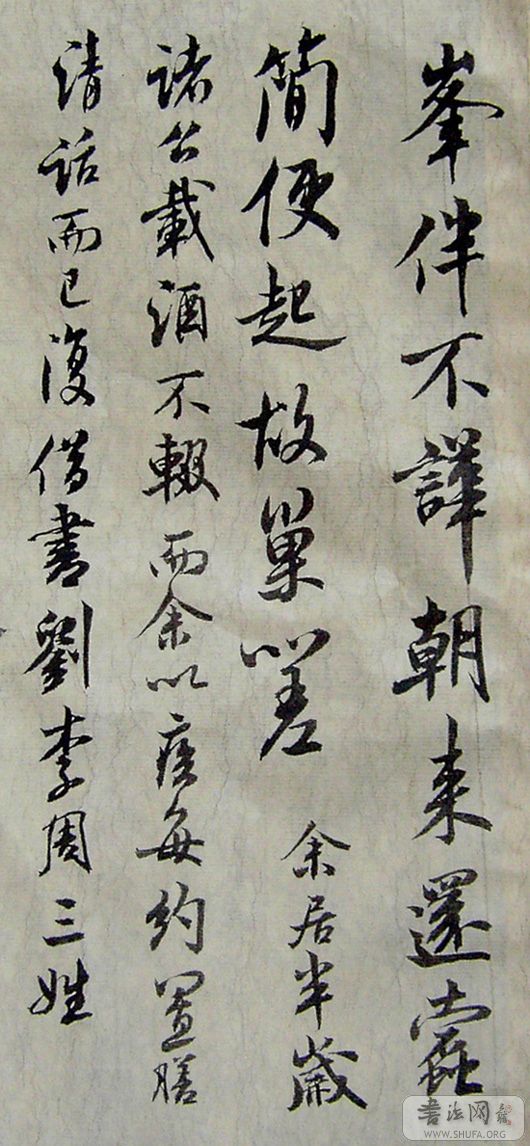 峯伴不譁朝来還蠹
簡便起故巢嗟 余居半歲
諸公載酒不輟而余以疾每約置膳
清話而已復借書劉李周三姓
書法网
WWW.SHUFA.ORG